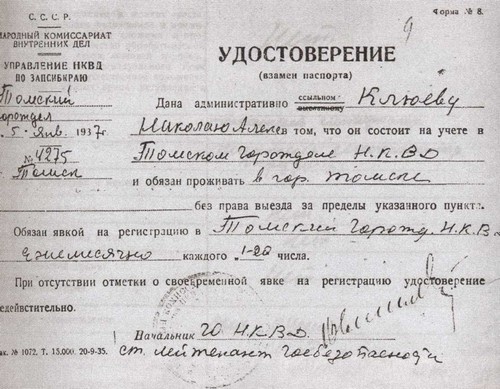 С. С. С. Р.
Форма № 8.
9
НАРОДНЫЙ КОМИССАРИАТ
ВНУТРЕННИХ ДЕЛ
УПРАВЛЕНИЕ НКВД
ПО ЗАПСИБКРАЮ
Томский
горотдел
5 янв. 1937г.
№ 4275
Томск
УДОСТОВЕРЕНИЕ
(взамен паспорта)
Дана административно ссыльном Клюеву
Николаю Алексе в том, что он состоит на учете в
Томском Горотделе Н.К.В.Д
и обязан проживать в гор. Томске
без права выезда за пределы указанного пункта.
Обязан явкой на регистрацию в Томский Горотд. Н.К.В
ежемесячно каждого 1-20 числа.
При отсутствии отметки о своевременной явке на регистрацию удостоверение
недействительно.
Начальник ГО Н.К.В.Д.
ст. лейтенант госбезопасности
ак. № 1072. Т. 15.000. 20-9-35.